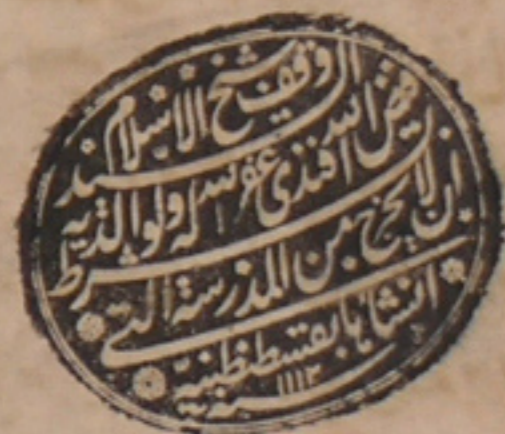 وقف شيخ الاسلام السيد
فيض الله افندى غفر الله له ولوالديه
بشرط ان لا يخرج من المدرسة التي
انشاها بقسطنطينية
سنه ١١١٢